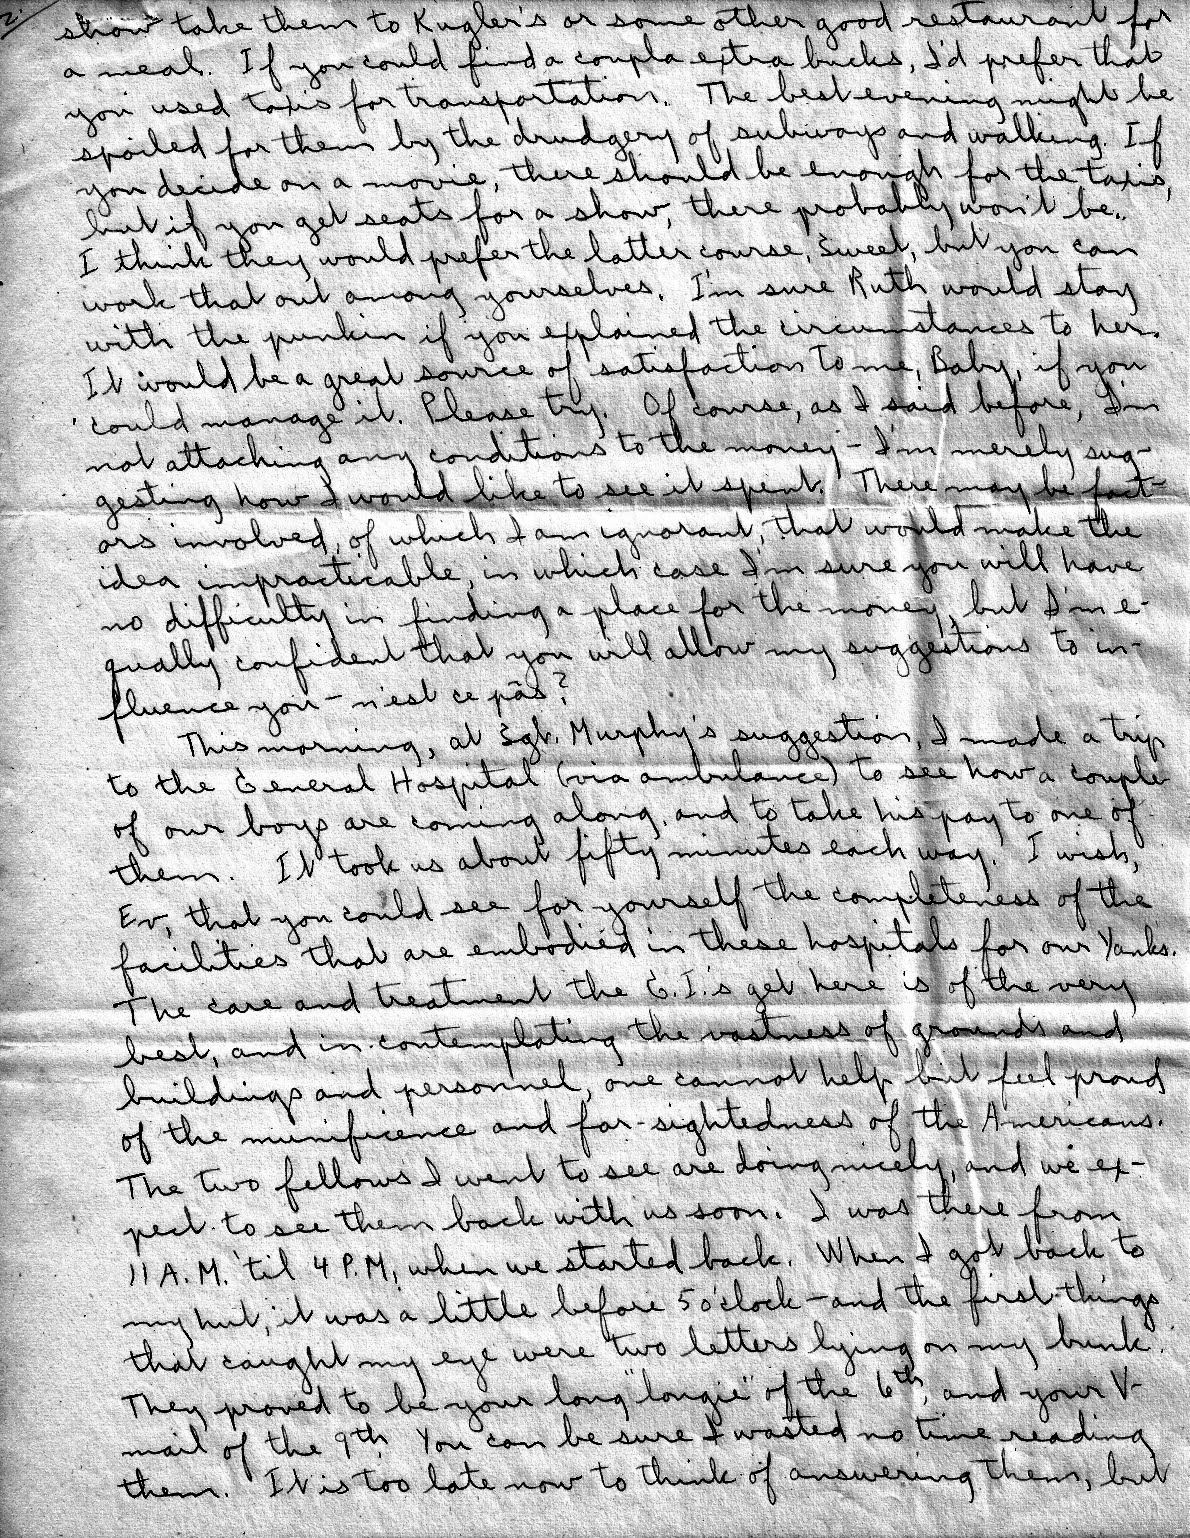 2.
show take them to Kugler's or some other good restaurant for
a meal. If you could find a coupla extra bucks, I'd prefer that
you used taxis for transportation. The best evening might be
spoiled for them by the drudgery of subways and walking. If
you decide on a movie, there should be enough for the taxis,
but if you get seats for a show, there probably won't be..
I think they would prefer the latter course, Sweet, but you can
work that out among yourselves. I'm sure Ruth would stay
with the punkin if you explained the circumstances to her.
It would be a great source of satisfaction to me, Baby, if you
could manage it. Please try. Of course, as I said before, I'm
not attaching any conditions to the money - I'm merely sug-
gesting how I would like to see it spent. There may be fact-
ors involved, of which I am ignorant, that would make the
idea impracticable, in which case I'm sure you will have
no difficulty in finding a place for the money, but I'm e-
qually confident that you will allow my suggestions to in-
fluence you - n'est ce pas?
This morning, at Sgt. Murphy's suggestion, I made a trip
to the General Hospital (via ambulance) to see how a couple
of our boys are coming along, and to take his pay to one of
them. It took us about fifty minutes each way. I wish,
Ev, that you could see for yourself the completeness of the
facilities that are embodied in these hospitals for our Yanks.
The care and treatment the G.I.'s get here is of the very
best, and in contemplating the vastness of grounds and
buildings and personnel, one cannot help but feel proud
of the munificence and far-sightedness of the Americans.
The two fellows I went to see are doing nicely, and we ex-
pect to see them back with us soon. I was there from
11 A.M. 'til 4 P.M, when we started back. When I got back to
my hut, it was a little before 5 o'clock - and the first things
that caught my eye were two letters lying on my bunk.
They proved to be your long "longie" of the 6th, and your V-
mail of the 9th. You can be sure I wasted no time reading
them. It is too late now to think of answering them, but